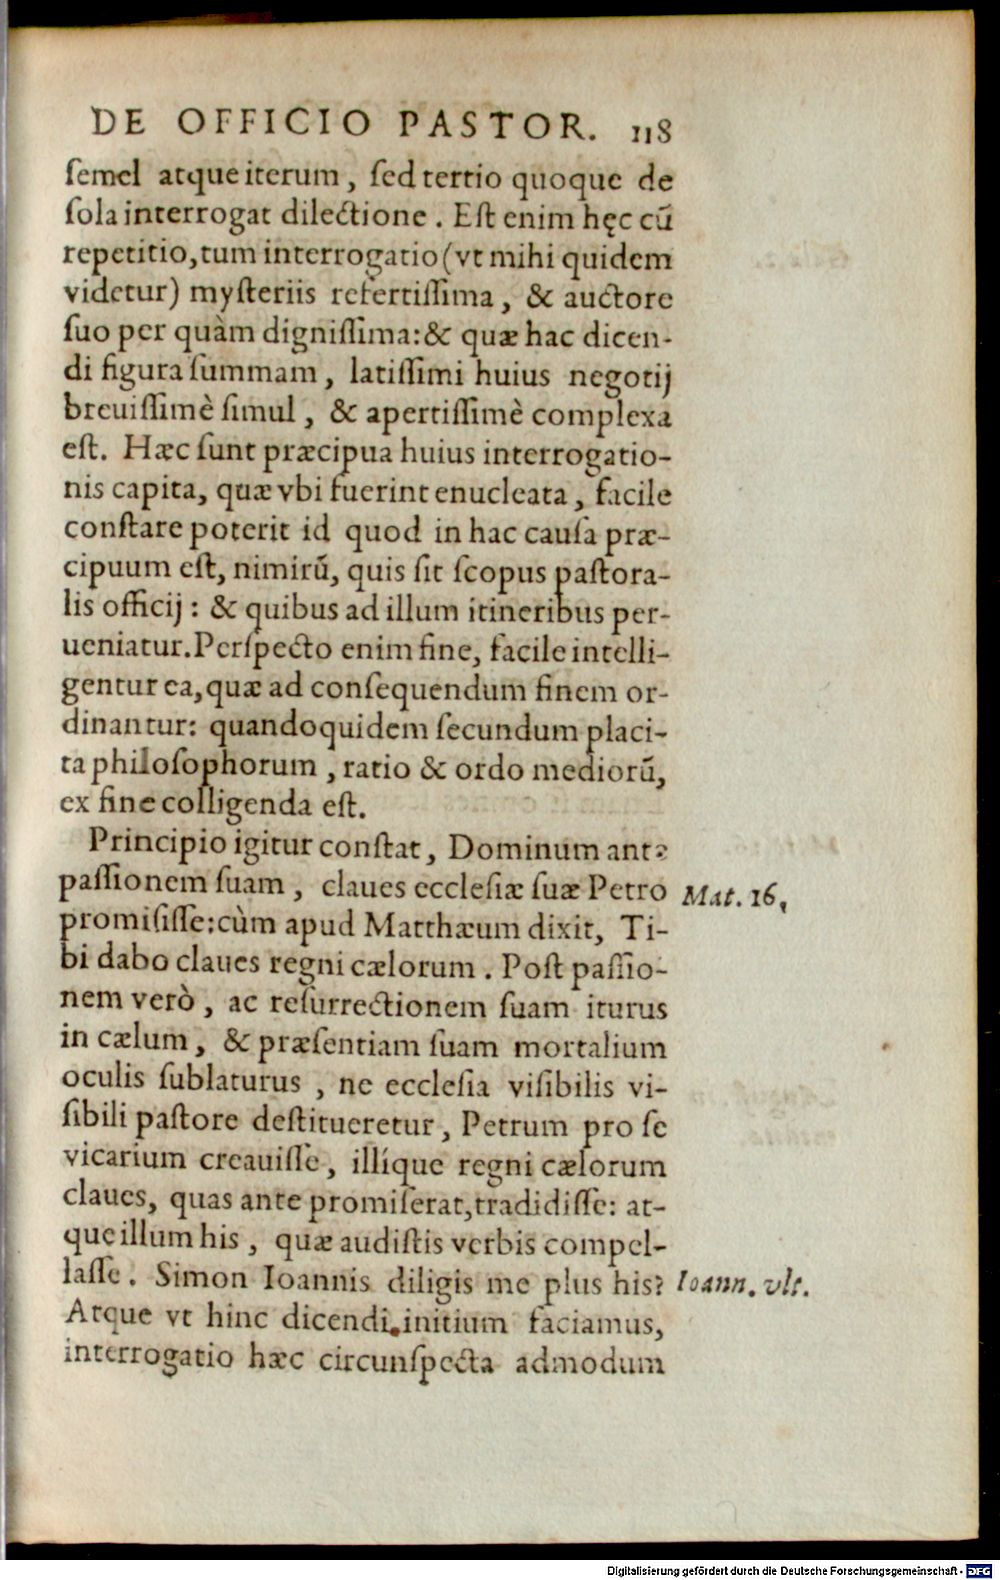 DE OFFICIO PASTOR. 118
ſemel atque iterum, ſed tertio quoque de
ſola interrogat dilectione. Eſt enim hęc cū
repetitio, tum interrogatio (vt mihi quidem
videtur) myſteriis refertiſſima, & auctore
ſuo per quàm digniſſima: & quæ hac dicen-
di figura ſummam, latiſſimi huius negotij
breuiſſimè ſimul, & apertiſſimè complexa
eſt. Hæc ſunt præcipua huius interrogatio-
nis capita, quæ vbi fuerint enucleata, facile
conſtare poterit id quod in hac cauſa præ-
cipuum eſt, nimirū, quis ſit ſcopus paſtora-
lis officij: & quibus ad illum itineribus per-
ueniatur. Perſpecto enim fine, facile intelli-
gentur ea, quæ ad conſequendum finem or-
dinantur: quandoquidem ſecundum placi-
ta philoſophorum, ratio & ordo mediorū,
ex fine colligenda eſt.
Principio igitur conſtat, Dominum ante
paſſionem ſuam, claues eccleſiæ ſuæ Petro Mat. 16,
promiſiſſe: cùm apud Matthæum dixit, Ti-
bi dabo claues regni cælorum. Poſt paſſio-
nem verò, ac reſurrectionem ſuam iturus
in cælum, & præſentiam ſuam mortalium
oculis ſublaturus, ne eccleſia viſibilis vi-
ſibili paſtore deſtitueretur, Petrum pro ſe
vicarium creauiſſe, illíque regni cælorum
claues, quas ante promiſerat, tradidiſſe: at-
que illum his, quæ audiſtis verbis compel-
laſſe. Simon Ioannis diligis me plus his? Ioann. vlt.
Atque vt hinc dicendi initium faciamus,
interrogatio hæc circunſpecta admodum
Digitalisierung gefördert durch die Deutsche Forschungsgemeinschaft - DFG